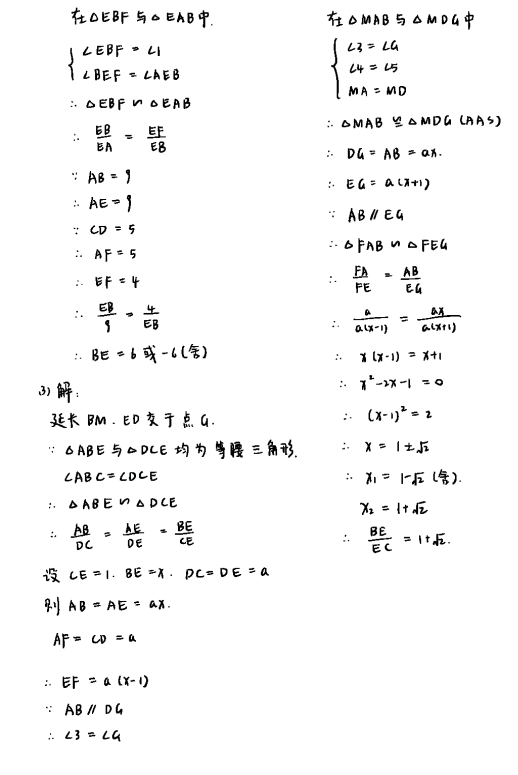 在△EBF与△EAB中.
{ ∠EBF = ∠1
∠BEF = ∠AEB
∴ △EBF ∽ △EAB
∴ EB/EA = EF/EB
∵ AB = 9
∴ AE = 9
∵ CD = 5
∴ AF = 5
∴ EF = 4
∴ EB/9 = 4/EB
∴ BE = 6 或 -6 (舍)
3) 解:
延长 BM. ED 交于点 G.
∵ △ABE 与 △DCE 均为等腰三角形.
∠ABC = ∠DCE
∴ △ABE ∽ △DCE
∴ AB/DC = AE/DE = BE/CE
设 CE = 1. BE = x. DC = DE = a
则 AB = AE = ax.
AF = CD = a
∴ EF = a (x-1)
∵ AB // DG
∴ ∠3 = ∠G
在△MAB与△MDG中
{ ∠3 = ∠G
∠4 = ∠5
MA = MD
∴ △MAB ≌ △MDG (AAS)
∴ DG = AB = ax.
∴ EG = a (x+1)
∵ AB // EG
∴ △FAB ∽ △FEG
∴ FA/FE = AB/EG
∴ a/a(x-1) = ax/a(x+1)
∴ x (x-1) = x+1
∴ x² -2x -1 = 0
∴ (x-1)² = 2
∴ x = 1±√2
∴ x₁ = 1-√2 (舍).
x₂ = 1+√2
∴ BE/EC = 1+√2.